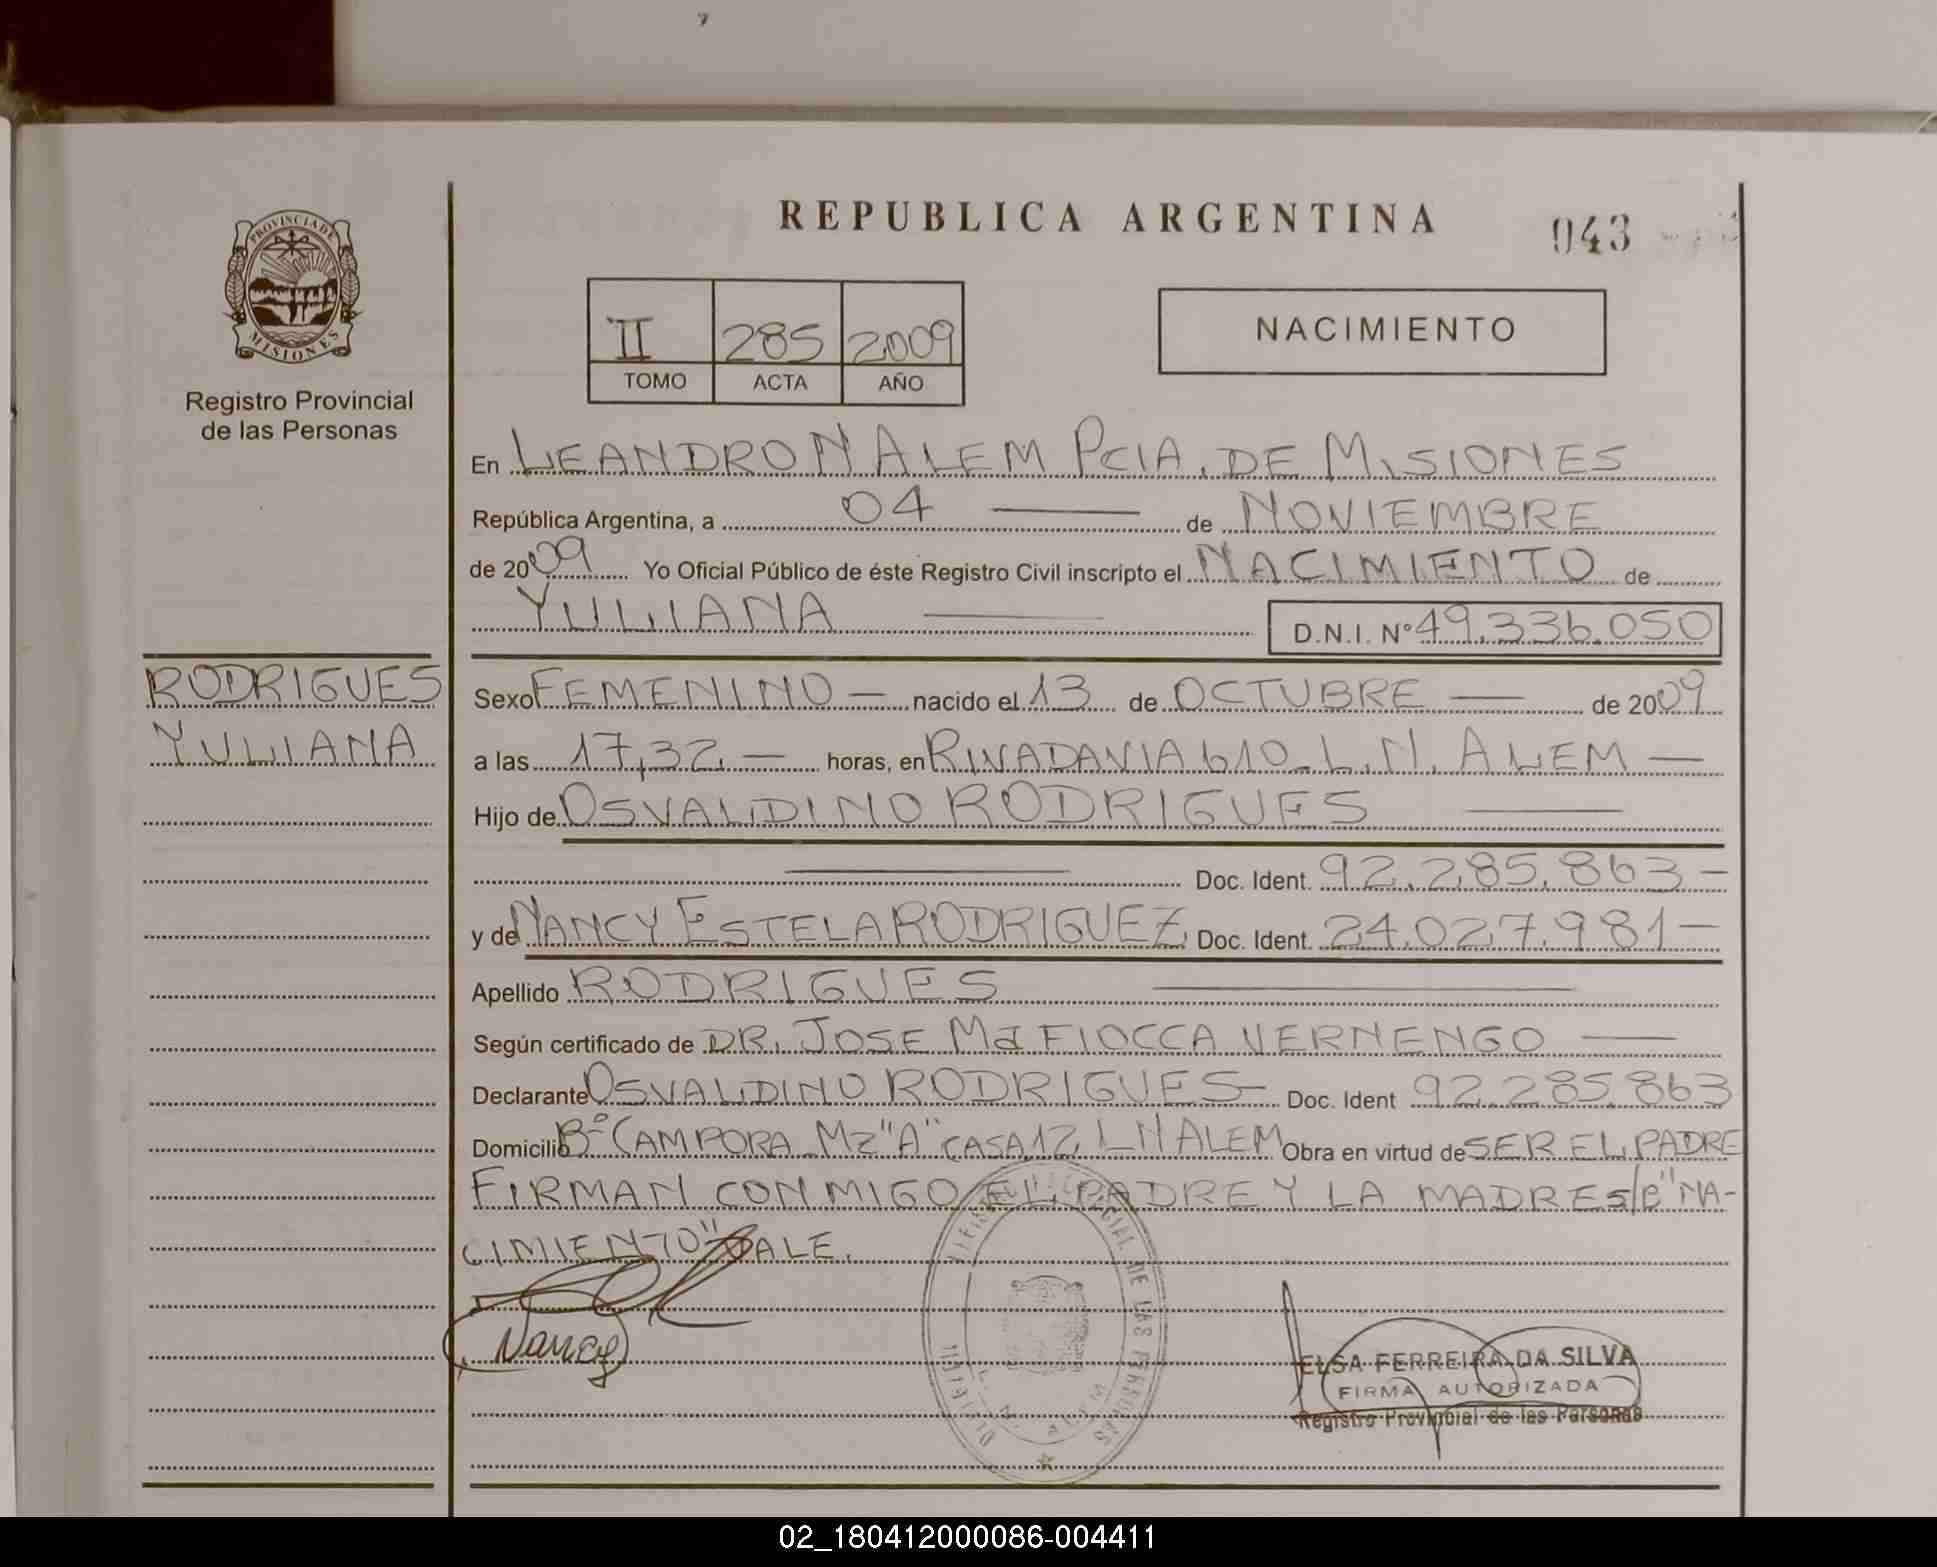 REPUBLICA ARGENTINA
043
PROVINCIA DE
MISIONES
Registro Provincial
de las Personas
II 285 2009
TOMO ACTA AÑO
NACIMIENTO
En LEANDRO N ALEM PCIA. DE MISIONES
República Argentina, a 04 de NOVIEMBRE
de 2009 Yo Oficial Público de éste Registro Civil inscripto el NACIMIENTO de
YULIANA D.N.I. Nº 49.336.050
RODRIGUES
YULIANA
Sexo FEMENINO — nacido el 13 de OCTUBRE — de 2009
a las 17,32 — horas, en RIVADAVIA 610 - L.N. ALEM —
Hijo de OSVALDINO RODRIGUES —
— Doc. Ident. 92.285.863 -
y de NANCY ESTELA RODRIGUEZ Doc. Ident. 24.027.981 -
Apellido RODRIGUES —
Según certificado de DR. JOSE Mª FIOCCA VERNENGO —
Declarante OSVALDINO RODRIGUES - Doc. Ident 92.285.863
Domicilio Bº CAMPORA - Mz "A" CASA 12 L N ALEM Obra en virtud de SER EL PADRE
FIRMAN CONMIGO EL PADRE Y LA MADRE s/B "NA-
CIMIENTO" VALE.
Nancy
DE LAS PERSONAS
L. N. ALEM
ELSA FERREIRA DA SILVA
FIRMA AUTORIZADA
Registro Provincial de las Personas
02_180412000086-004411